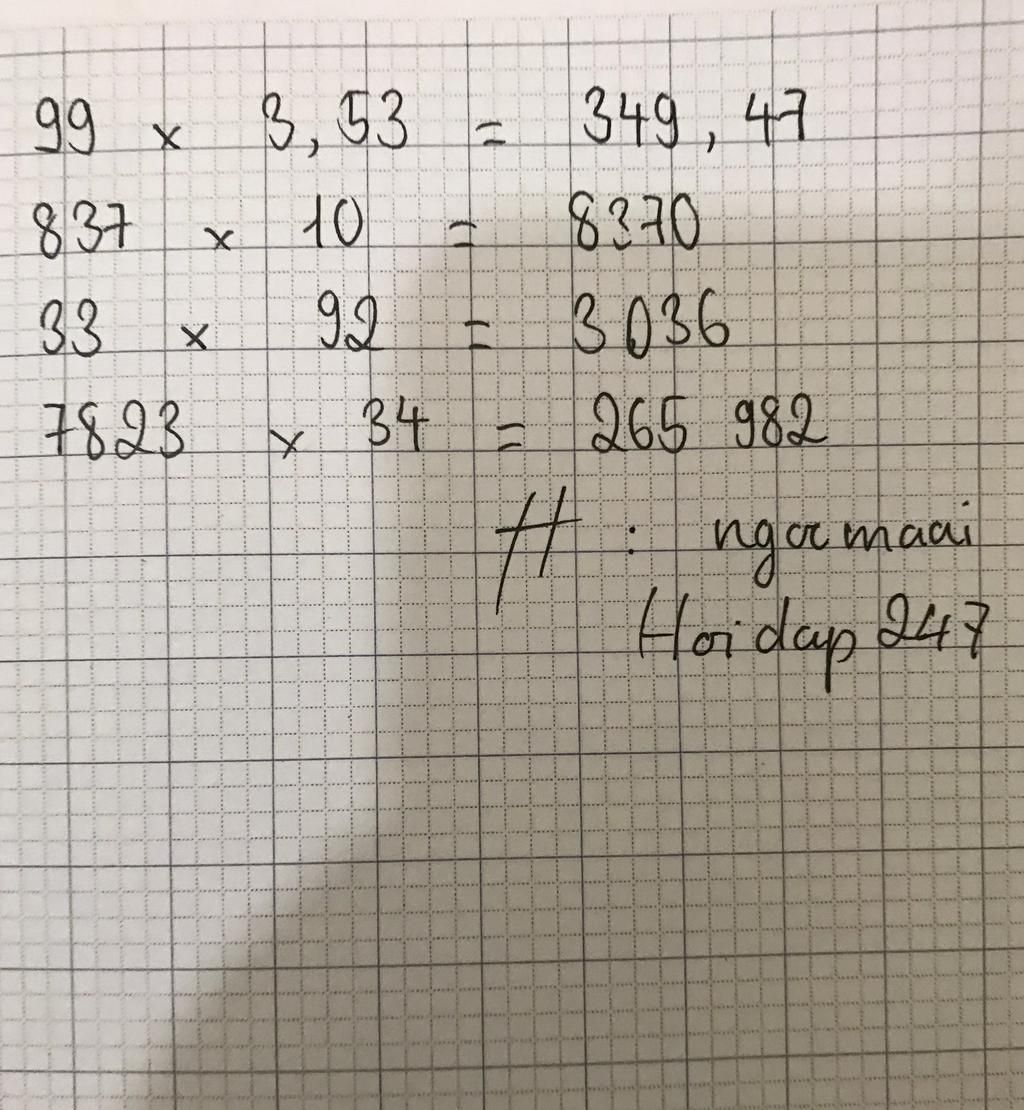 99 × 3,53 = 349,47
837 × 10 = 8370
33 × 92 = 3036
7823 × 34 = 265 982
# : ngocmaai
Hoidap247